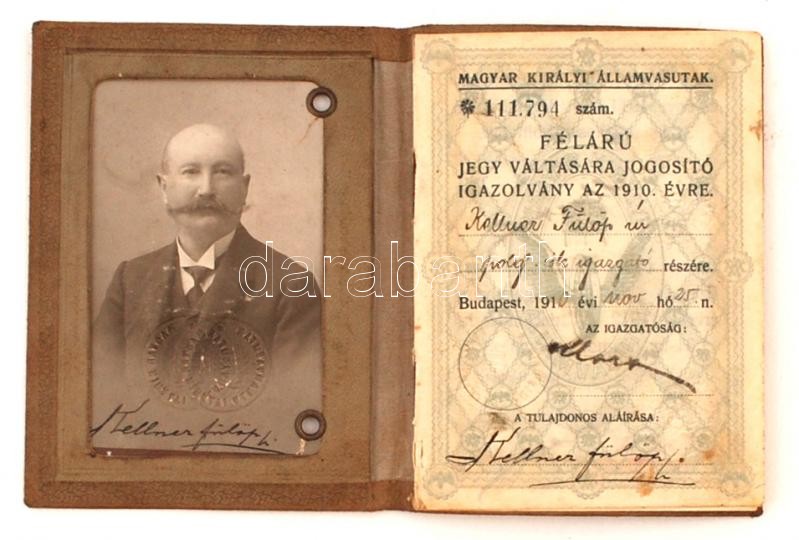 MAGYAR KIRÁLYI ÁLLAMVASUTAK.
* 111.794 szám.
FÉLÁRÚ
JEGY VÁLTÁSÁRA JOGOSÍTÓ
IGAZOLVÁNY AZ 1910. ÉVRE.
Kellner Fülöp úr
polg. isk. igazgató részére.
Budapest, 191 évi nov hó 25 n.
AZ IGAZGATÓSÁG:
A TULAJDONOS ALÁÍRÁSA:
Kellner Fülöp
Kellner Fülöp
darabanth.com